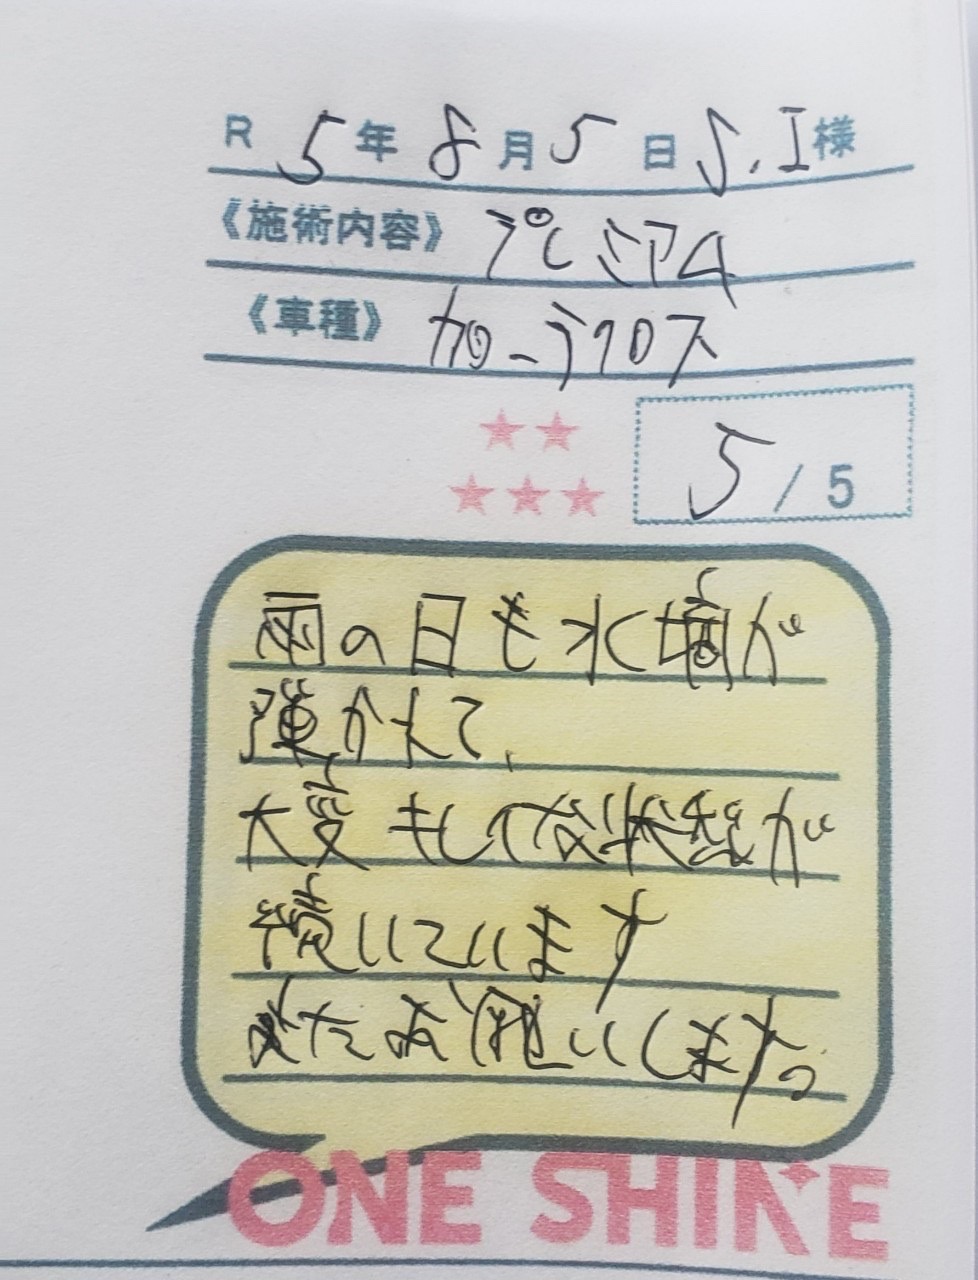 R 5年 8月5日 S.I様
《施術内容》 プレミアム
《車種》 カローラクロス
5/5
雨の日も水滴が
弾かれて、
大変キレイな状態が
続いています
またお願いします。
ONE SHINE